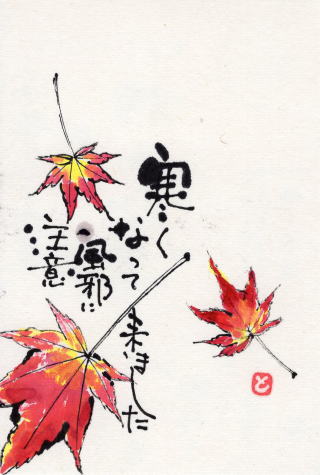 寒く
なって
来ました
風邪に
注意
と